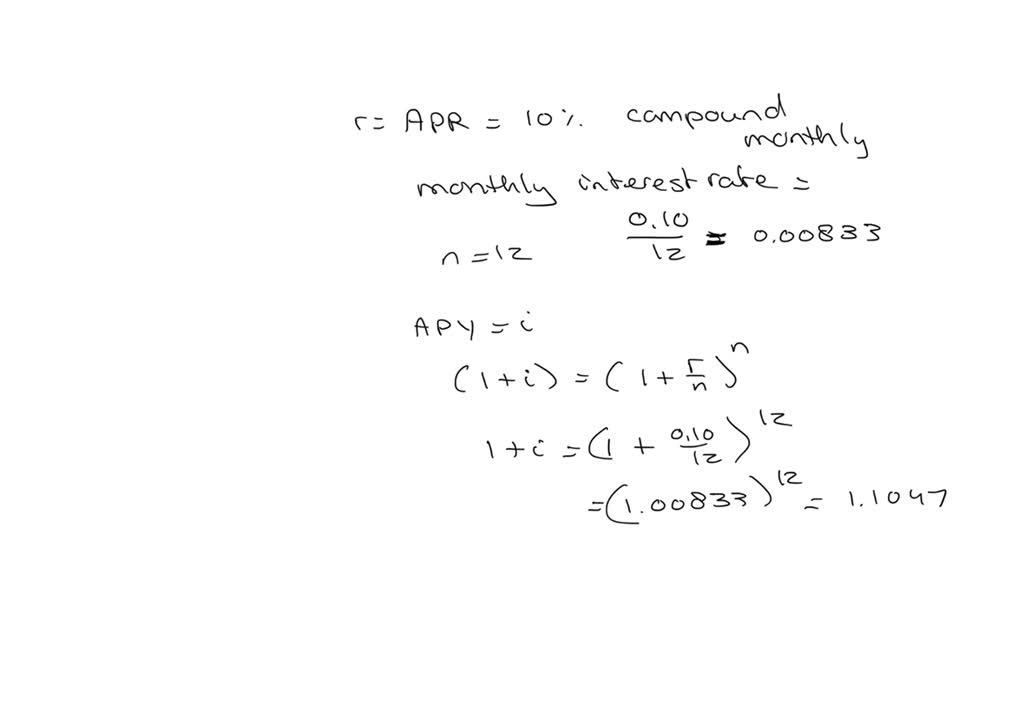 r = APR = 10%. compound
monthly
monthly interest rate =
0.10/12 = 0.00833
n = 12
APY = i
(1+i) = (1 + r/n)^n
1+i = (1 + 0.10/12)^12
= (1.00833)^12 = 1.1047